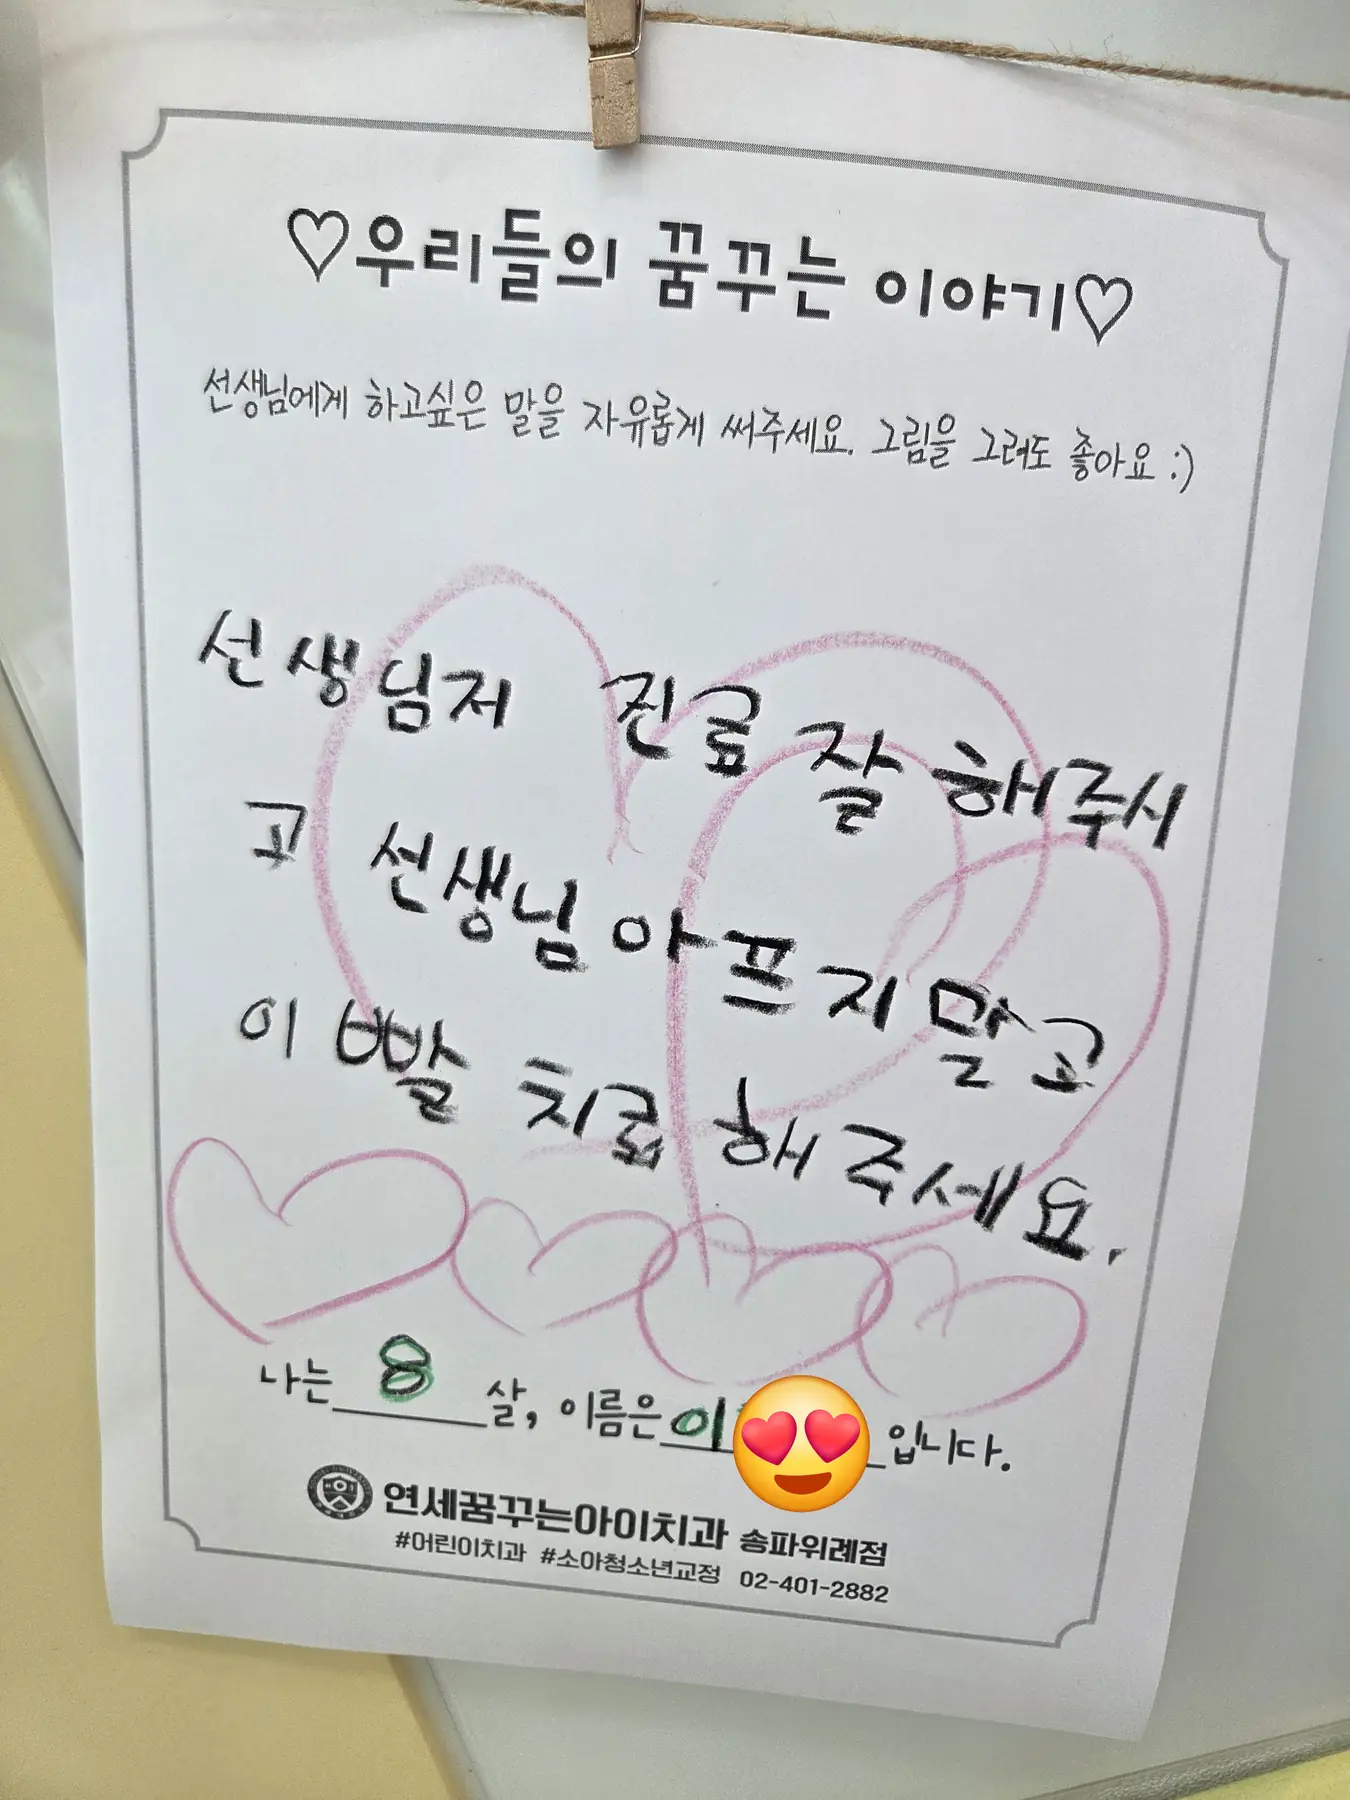 ♡우리들의 꿈꾸는 이야기♡
선생님에게 하고싶은 말을 자유롭게 써주세요. 그림을 그려도 좋아요 :)
선생님저 진료 잘 해주시
고 선생님 아프지 말고
이빨 치료 해주세요.
나는 8 살, 이름은 이 입니다.
연세꿈꾸는아이치과 송파위례점
#어린이치과 #소아청소년교정 02-401-2882